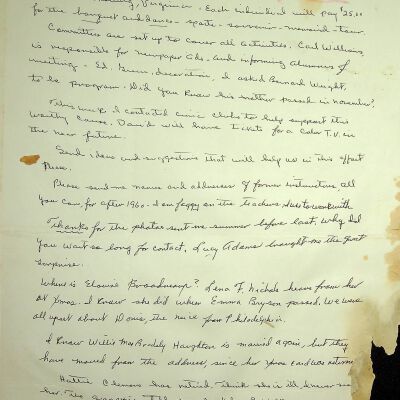 Virginia. Each individual will pay $25.00
for the banquet and dance - sports - souvenir - memorial - tour.
Committees are set up to cover all activities. Carl Williams,
is responsible for newspaper Ads. and informing Alumnus of
meeting - Ed. Green, decoration, I asked Bernard Wright,
to be program. Did you know his mother passed in November?
This week I contacted civic clubs to help support this
worthy cause. David will have tickets for a Color T.V. in
the near future.
Send ideas and suggestions that will help us in this effort
Please.
Please send me names and addresses of former instructors, all
you can, for after 1960. I am foggy on the teachers
Thanks for the photos sent me summer before last. Why did
you wait so long for contact. Lucy Adams brought me the great
surprise.
Where is Elouise Broadnax? Lena F. Nichols hears from her
at Xmas. I knew she did when Emma Bryson passed. We were
all upset about Doris, the niece from Philadelphia.
I know Willie McBrady Haughton is married again, but they
have moved from the address, since her Xmas card was returned
Hattie Clemons has retired. I think she is ill,
her